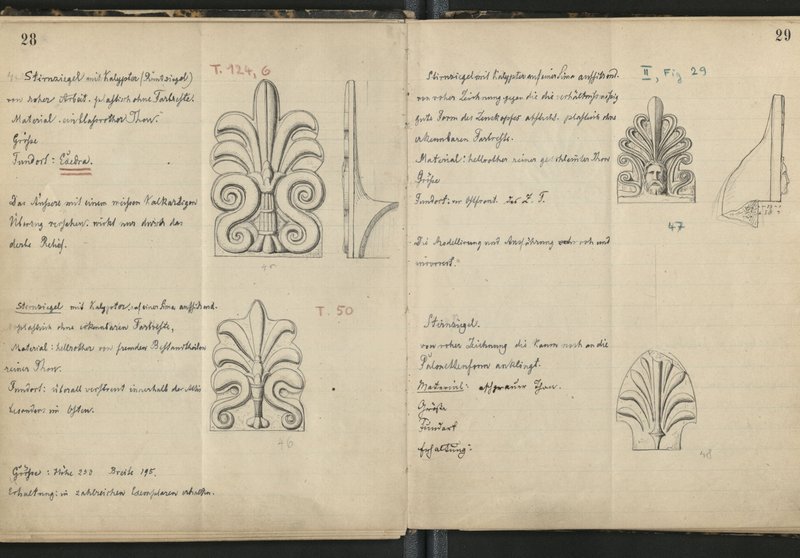 28
Stirnziegel mit Kalypter (Rundziegel)
von roher Arbeit. plastisch ohne Farbreste.
Material: einblassrother Thon.
Größe
Fundort: Exedra.
Das Äußere mit einem weissen Kalkartigen
Überzug versehen. wirkt nur durch das
derbe Relief.
T. 124, 6
45
Stirnziegel mit Kalypter, auf einer Sima aufsitzend.
plastisch ohne erkennbaren Farbreste,
Material: hellrother von fremden Bestandtheilen
reiner Thon.
Fundort: überall verstreut innerhalb der Altis
besonders im Osten.
T. 50
46
Größe: Höhe 230 Breite 195.
Erhaltung: in zahlreichen Exemplaren erhalten.
29
Stirnziegel mit Kalypter auf einer Sima aufsitzend.
von roher Zeichnung gegen die die verhältnissmäßig
gute Form des Zeuskopfes absticht. plastisch ohne
erkennbaren Farbreste.
Material: hellrother reiner geschlemmter Thon
Größe
Fundort: vor Ostfront des Z. T.
Die Modellierung und Ausführung sehr roh und
II, Fig 29
47
Stirnziegel.
von roher Zeichnung die kaum noch an die
Palmettenform anklingt.
Material: aschgrauer Thon.
Größe
Fundort
Erhaltung:
48